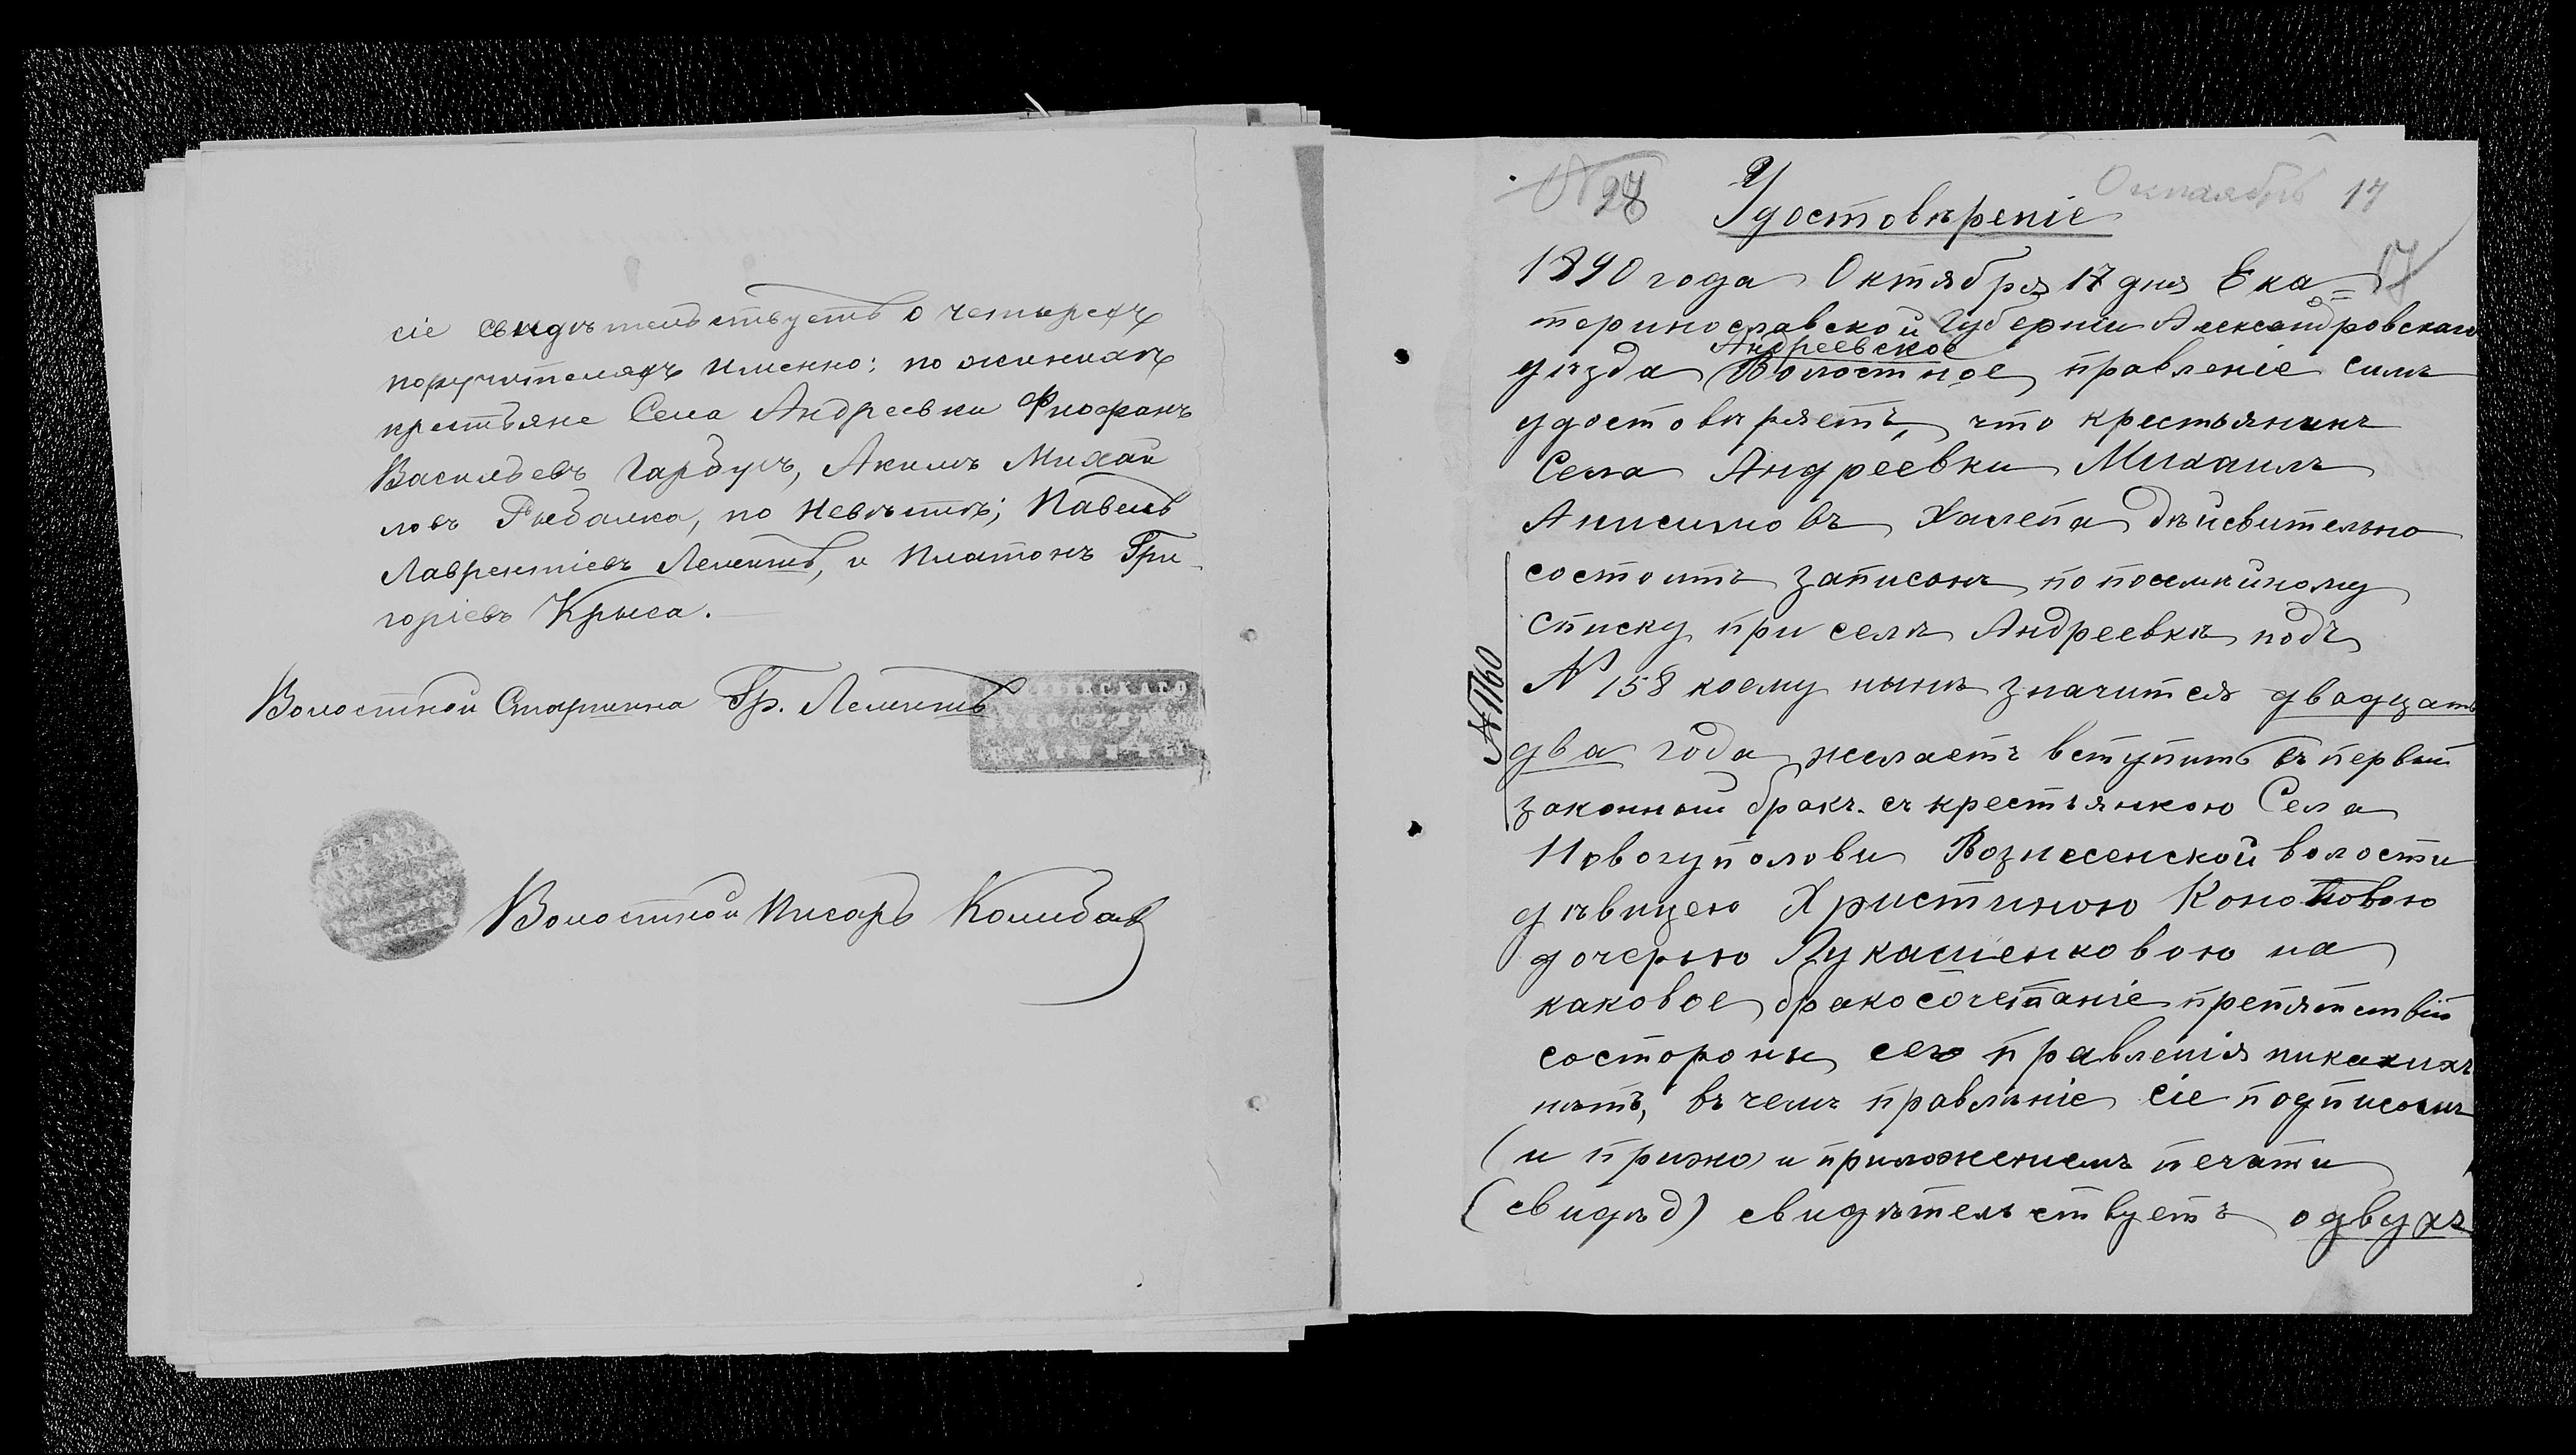 сіе свидѣтельствуетъ о четырехъ
поручителяхъ именно: по женихѣ
крестьяне Села Андреевки Фиофанъ
Васильевъ Гарбузъ, Акимъ Михай
ловъ Рыбалка, по Невѣстѣ; Павелъ
Лаврентіевъ Лементъ, и Платонъ Гри-
горіевъ Крыса.
Волостной Старшина Гр. Лементъ
Волостной Писарь
№ 28
Октябрь 17
Удостовѣреніе
17
1890 года Октября 17 дня Ека=
теринославской Губерніи Александровскаго
Андреевское
уѣзда Волостное правленіе симъ
удостовѣряетъ, что крестьянинъ
Села Андреевки Михаилъ
Анисимовъ Халепа дѣйсвительно
состоитъ записонъ по посемейному
списку при селѣ Андреевкѣ подъ
№ 158 коему нынѣ значится двадцать
два года желаетъ вступить въ первый
законный бракъ съ крестьянкою Села
Новогуполови Вознесенской волости
дѣвицею Христиною Коноповою
дочерью Лукашенковою на
каковое бракосочетаніе препятствій
состороны сего правленія никакихъ
нѣтъ, въ чемъ правлѣніе сіе подписомъ
(и прижо) и приложениемъ печати
(свидѣд) свидѣтельствуетъ одвухъ
№ 1160